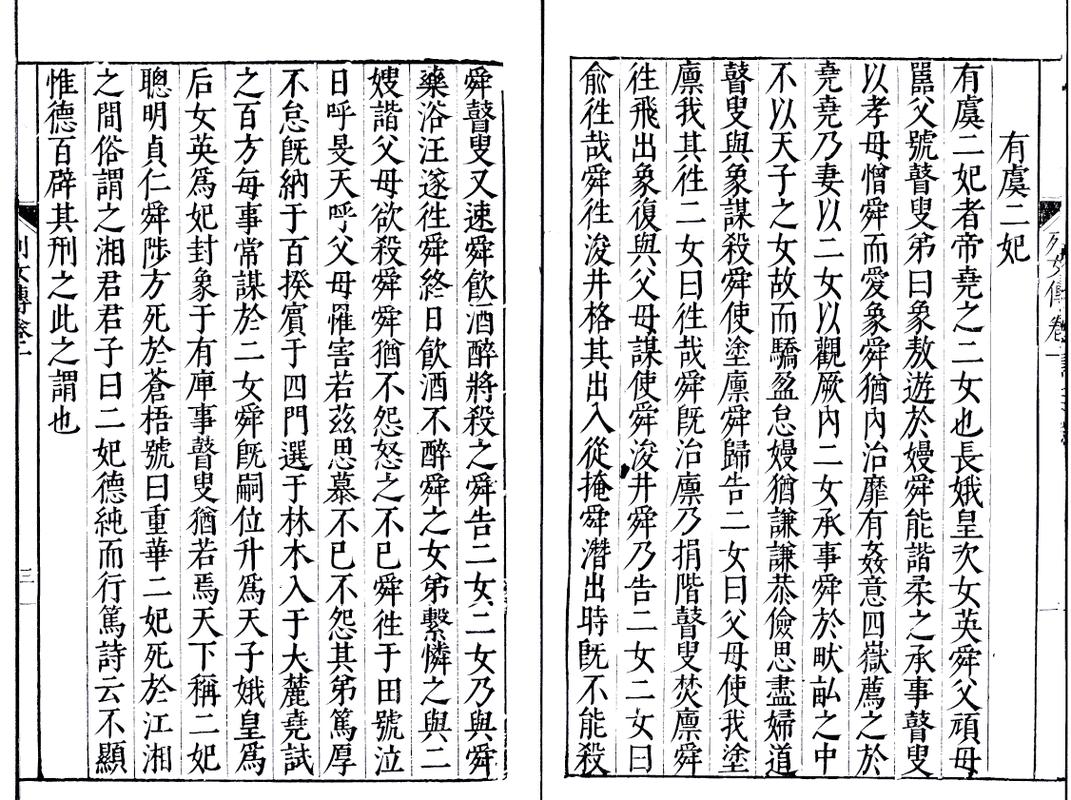 有虞二妃
有虞二妃者帝堯之二女也長娥皇次女英舜父頑母
嚚父號瞽叟弟曰象敖遊於嫚舜能諧柔之承事瞽叟
以孝母憎舜而愛象舜猶內治靡有姦意四嶽薦之於
堯堯乃妻以二女以觀厥內二女承事舜於畎畝之中
不以天子之女故而驕盈怠嫚猶謙謙恭儉思盡婦道
瞽叟與象謀殺舜使塗廩舜歸告二女曰父母使我塗
廩我其往二女曰往哉舜既治廩乃捐階瞽叟焚廩舜
往飛出象復與父母謀使舜浚井舜乃告二女二女曰
俞往哉舜往浚井格其出入從掩舜潛出時既不能殺
舜瞽叟又速舜飲酒醉將殺之舜告二女二女乃與舜
藥浴汪遂往舜終日飲酒不醉舜之女弟繫憐之與二
嫂諧父母欲殺舜舜猶不怨怒之不已舜往于田號泣
日呼旻天呼父母惟害若茲思慕不已不怨其弟篤厚
不怠既納于百揆賓于四門選于林木入于大麓堯試
之百方每事常謀於二女舜既嗣位升為天子娥皇為
后女英為妃封象于有庳事瞽叟猶若焉天下稱二妃
聰明貞仁舜陟方死於蒼梧號曰重華二妃死於江湘
之間俗謂之湘君君子曰二妃德純而行篤詩云不顯
惟德百辟其刑之此之謂也
列女傳卷一
三